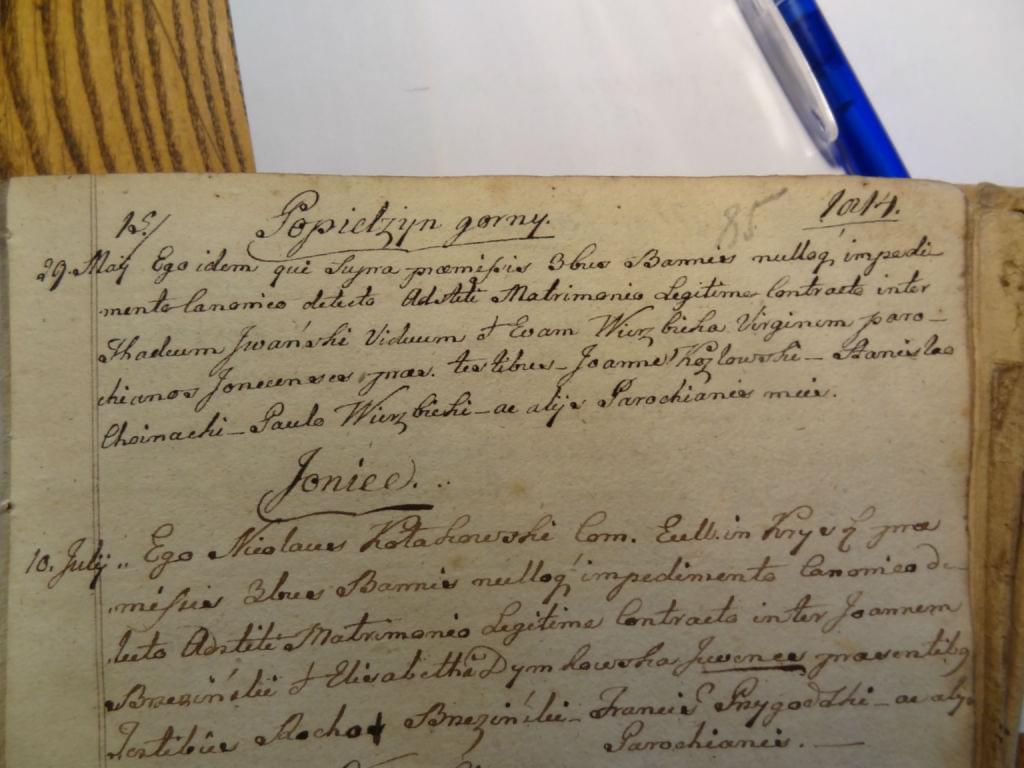 15/ Popielzyn gorny. 85 1814.
29. Maij Ego idem qui Supra præmissis 3bus Bannis nulloq impedi
mento Canonico detecto Adstiti Matrimonio Legitime Contracto inter
Thadeum Jwański Viduum et Evam Wierzbicka Virginem paro-
chianos Jonecenses præs. testibus - Joanne Kozlowski - Stanislao
Choinacki - Paulo Wierzbicki - ac alijs Parochianis meis.
Joniec. . .
10. Julij .. Ego Nicolaus Kołakowski Com. Eccl. in Kry præ
missis 3bus Bannis nulloq impedimento Canonico de-
tecto Adstiti Matrimonio Legitime Contracto inter Joannem
Brzeziński et Elisabetha Dymkowska Juvenes præsentibq
Testibus Rocho Brzeziński - Francis Przygodzki - ac alijs
Parochianis. —